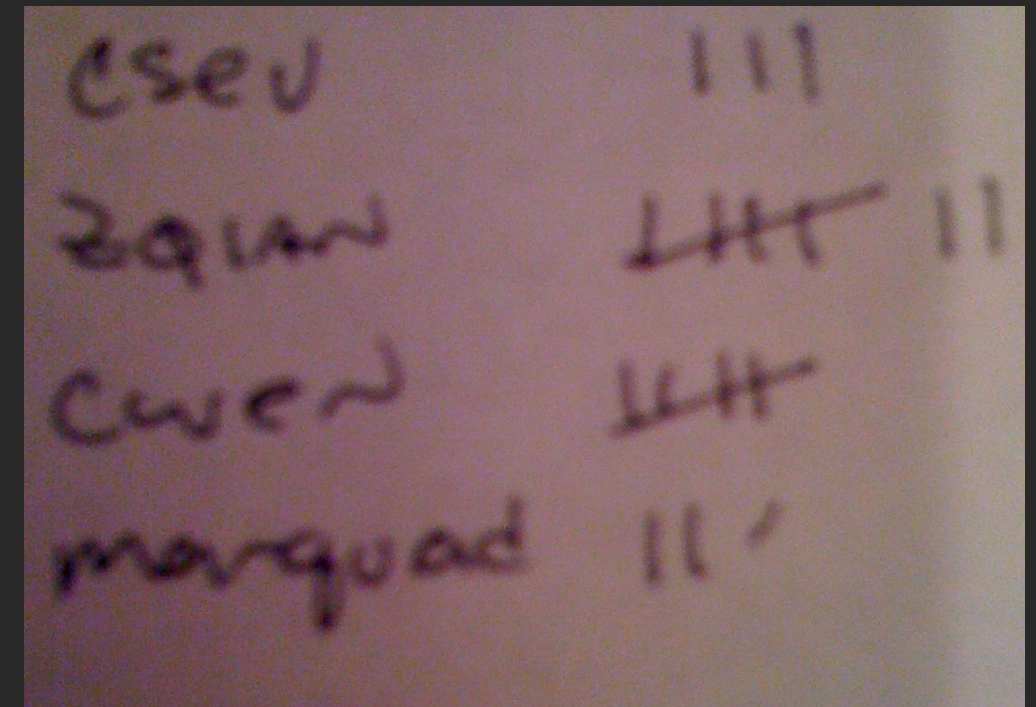 csev III
zqian IIII II
cwen IIII
marquad II ′